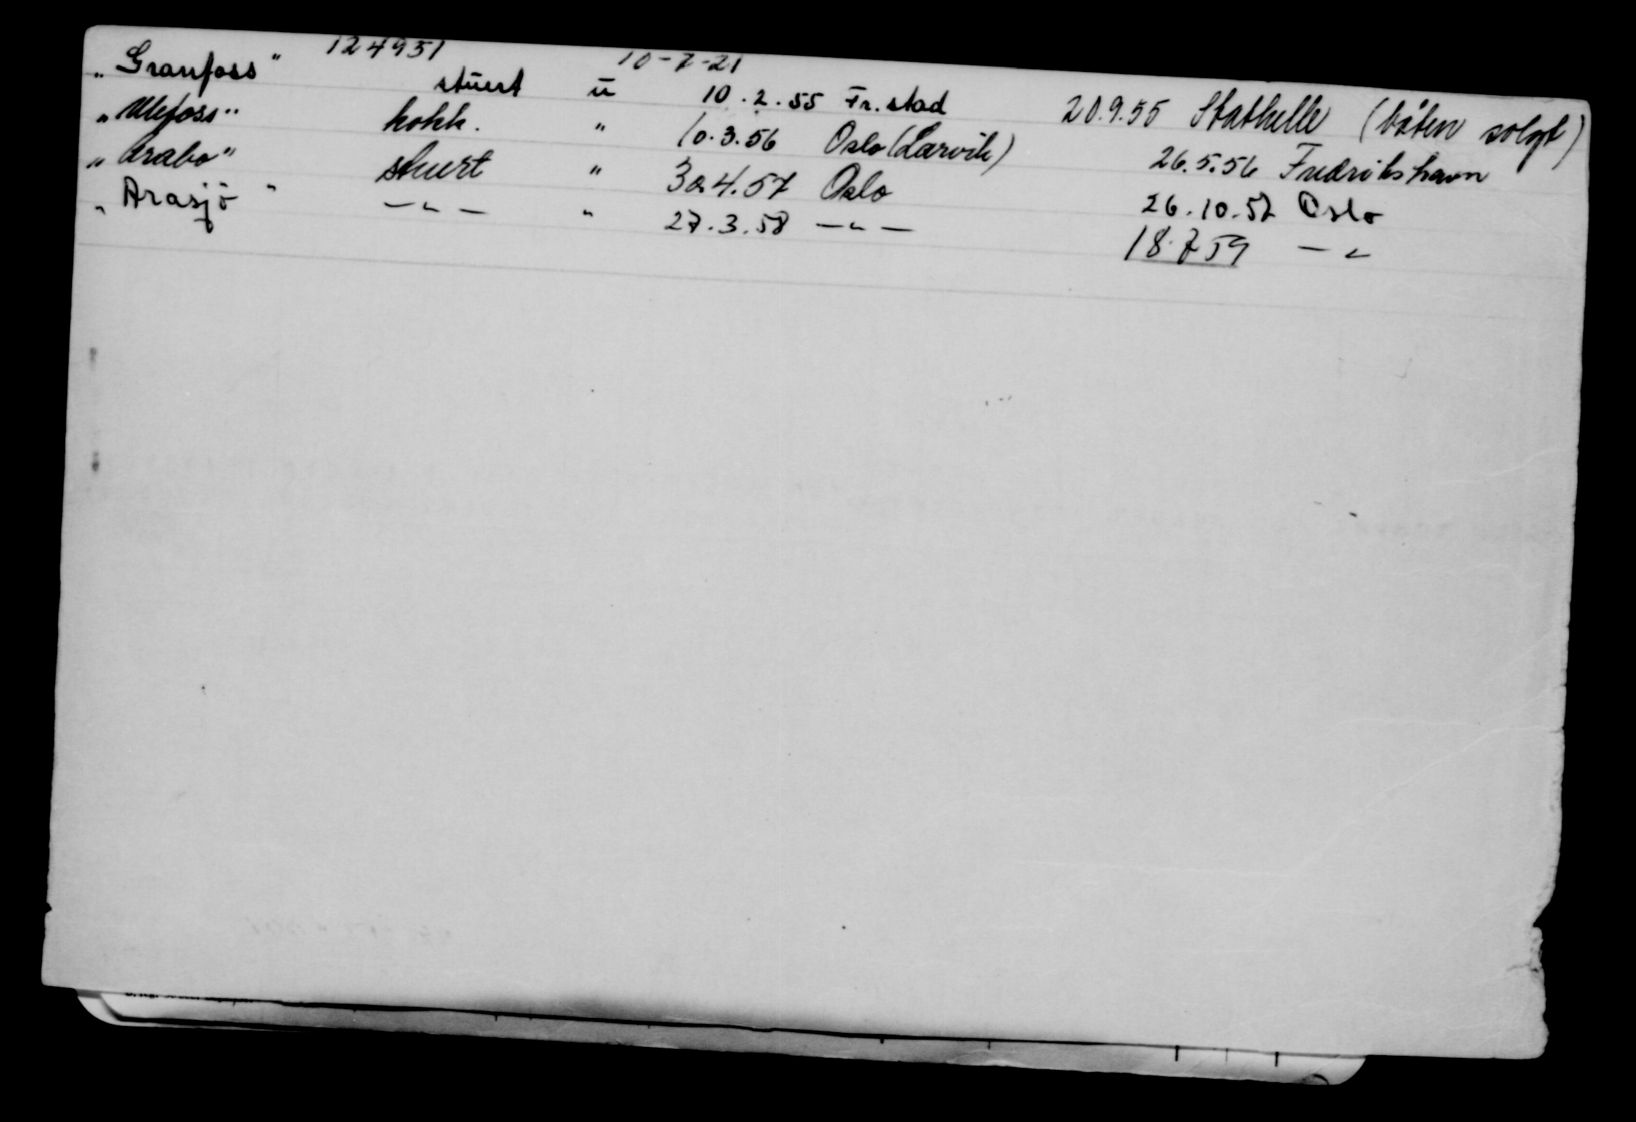 124951 10-7-21
„Granfoss" stuert u 10.2.55 Fr.stad 20.9.55 Stathelle (båten solgt)
„Ulefoss" kokk. " 10.3.56 Oslo (Larvik) 26.5.56 Fredrikshavn
„Arabo" stuert " 30.4.57 Oslo 26.10.57 Oslo
„Arasjö" —„— " 27.3.58 —„— 18.7.59 —„